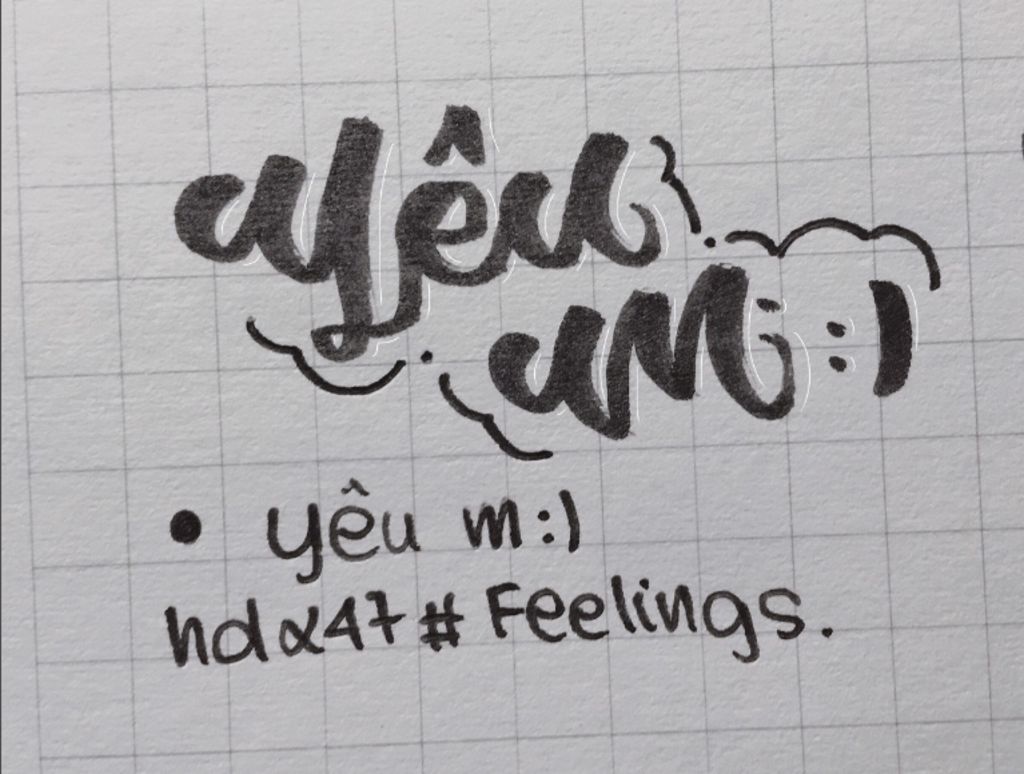 yêu
M :)
• yêu m:)
hdα47 # Feelings.